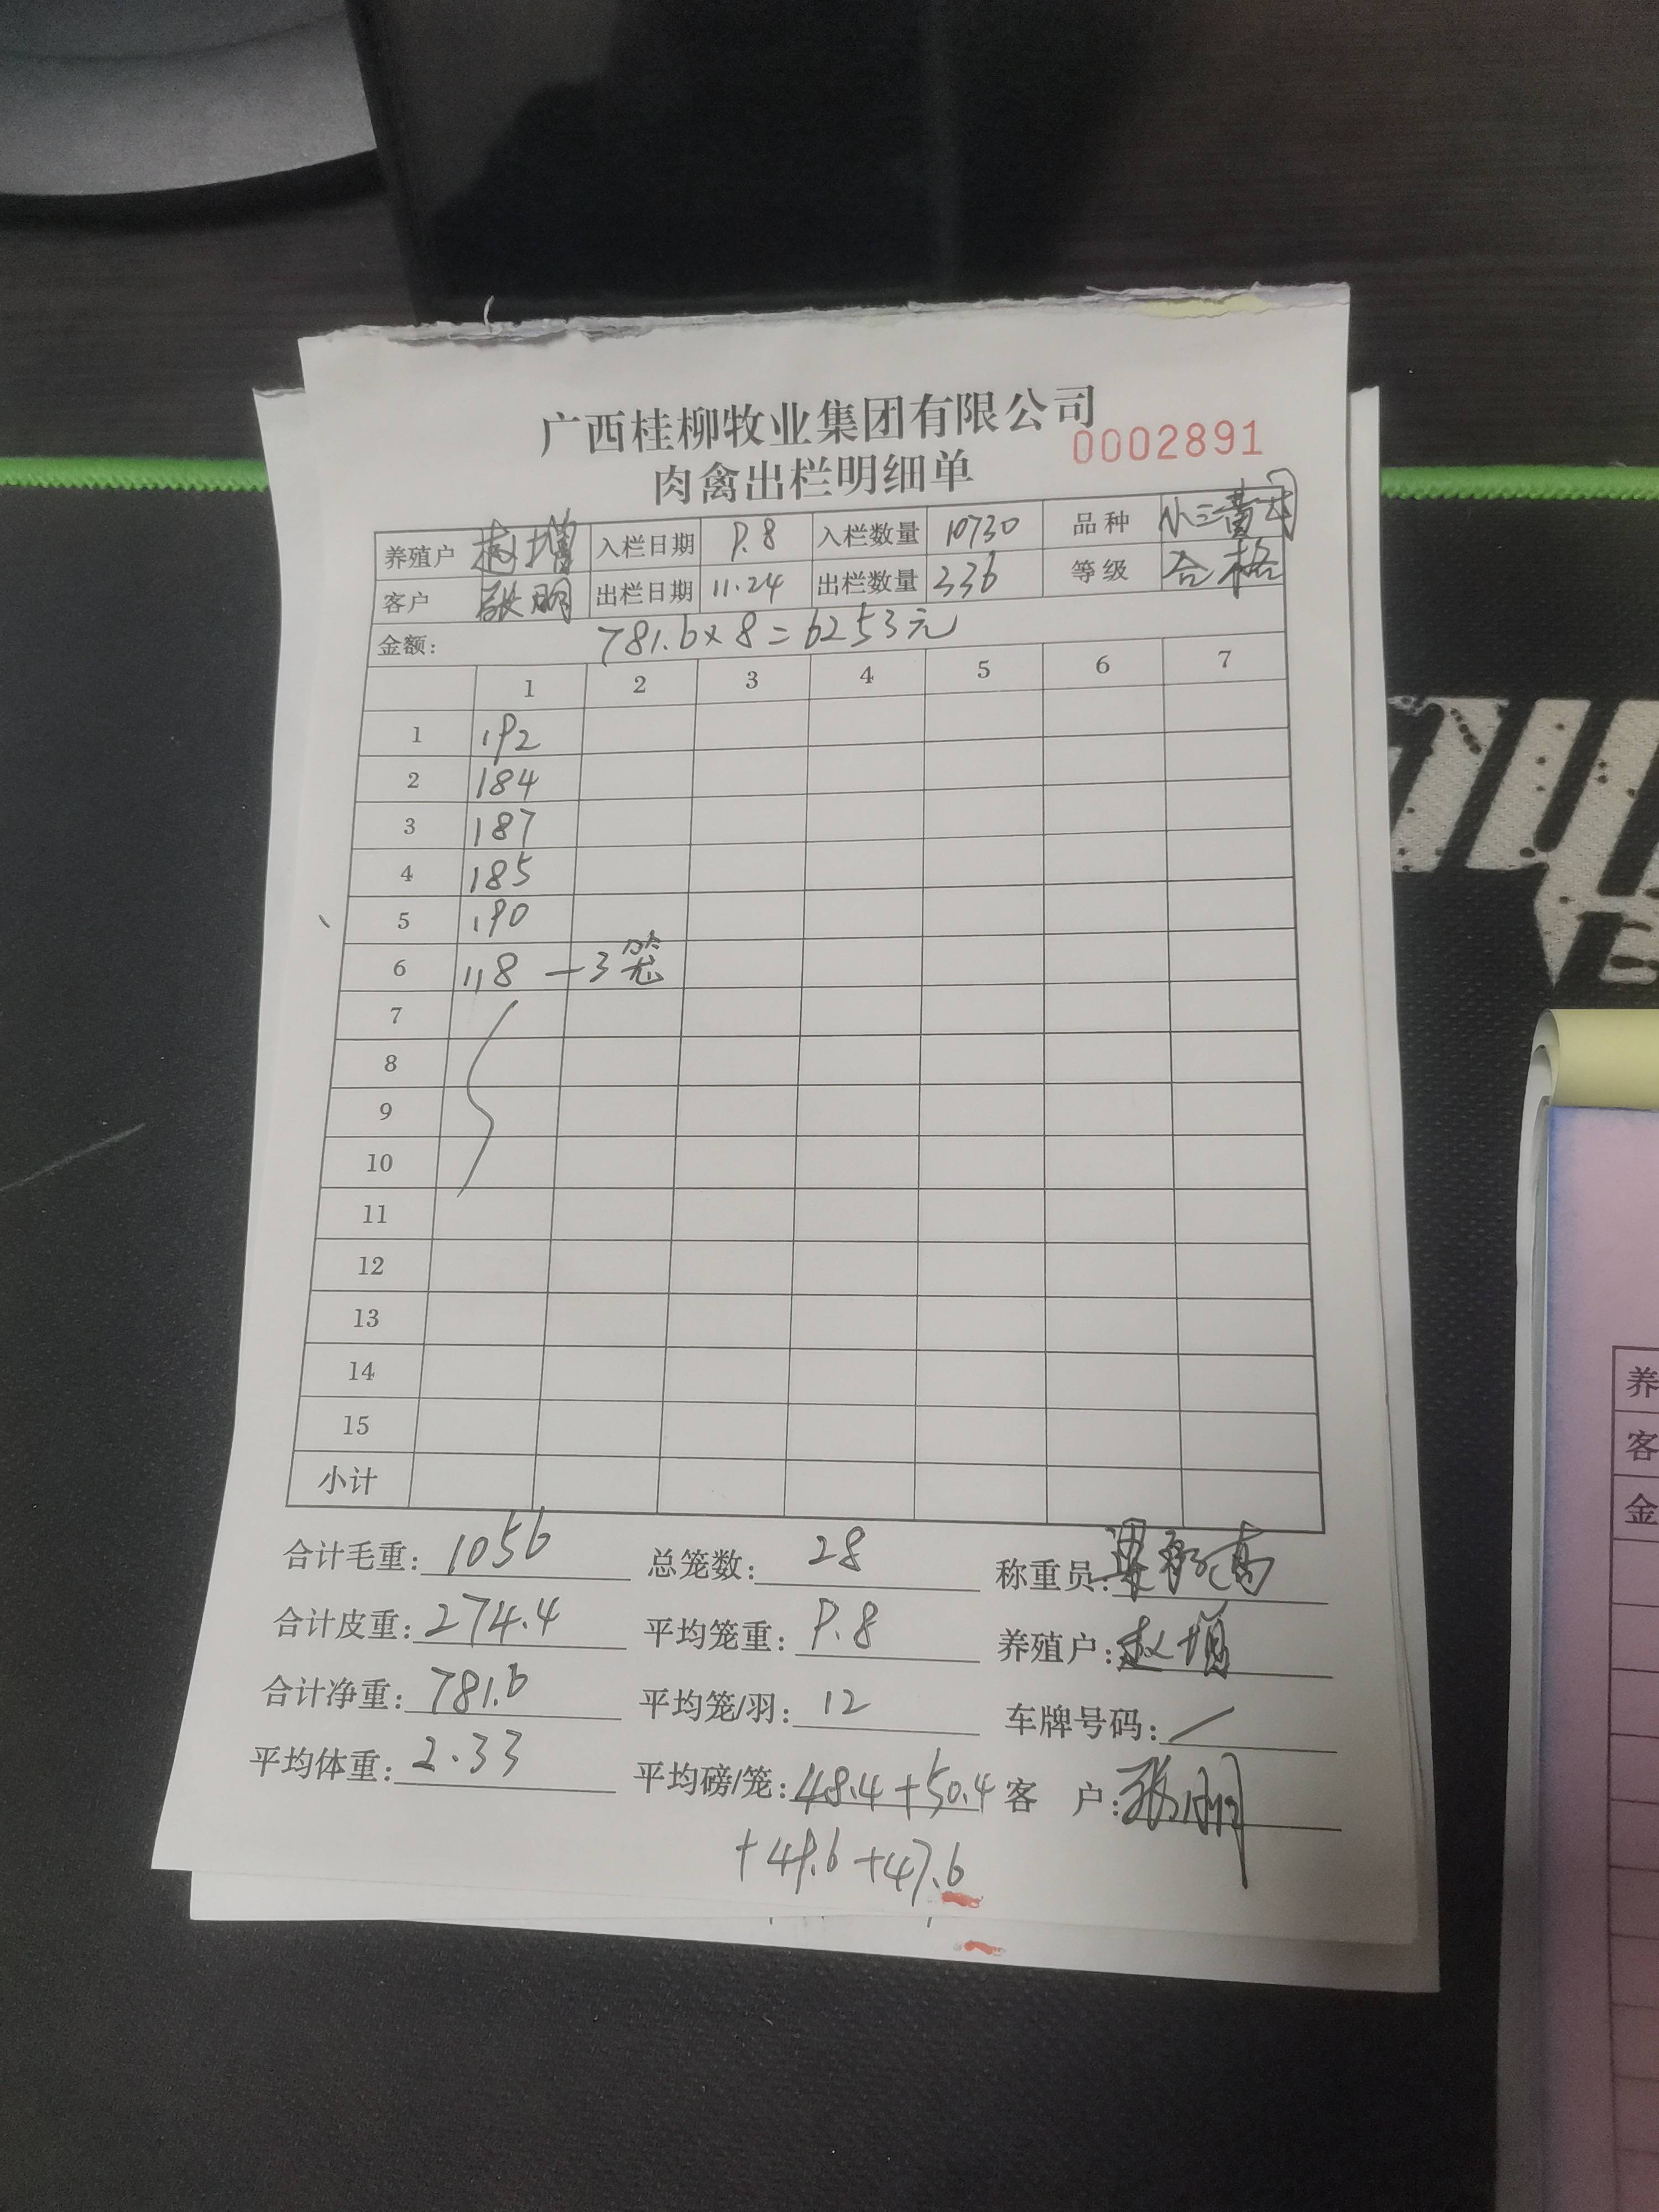 广西桂柳牧业集团有限公司
0002891
肉禽出栏明细单
养殖户 赵增 入栏日期 9.8 入栏数量 10730 品种 小三黄母
客户 张明 出栏日期 11.24 出栏数量 336 等级 合格
金额: 781.6×8=6253元
1 2 3 4 5 6 7
1 192
2 184
3 187
4 185
5 190
6 118 —3笼
7
8
9
10
11
12
13
14
15
小计
合计毛重: 1056 总笼数: 28 称重员:
合计皮重: 274.4 平均笼重: 9.8 养殖户: 赵增
合计净重: 781.6 平均笼/羽: 12 车牌号码: /
平均体重: 2.33 平均磅/笼: 48.4+50.4 客 户:
+49.6+47.6
养
客
金